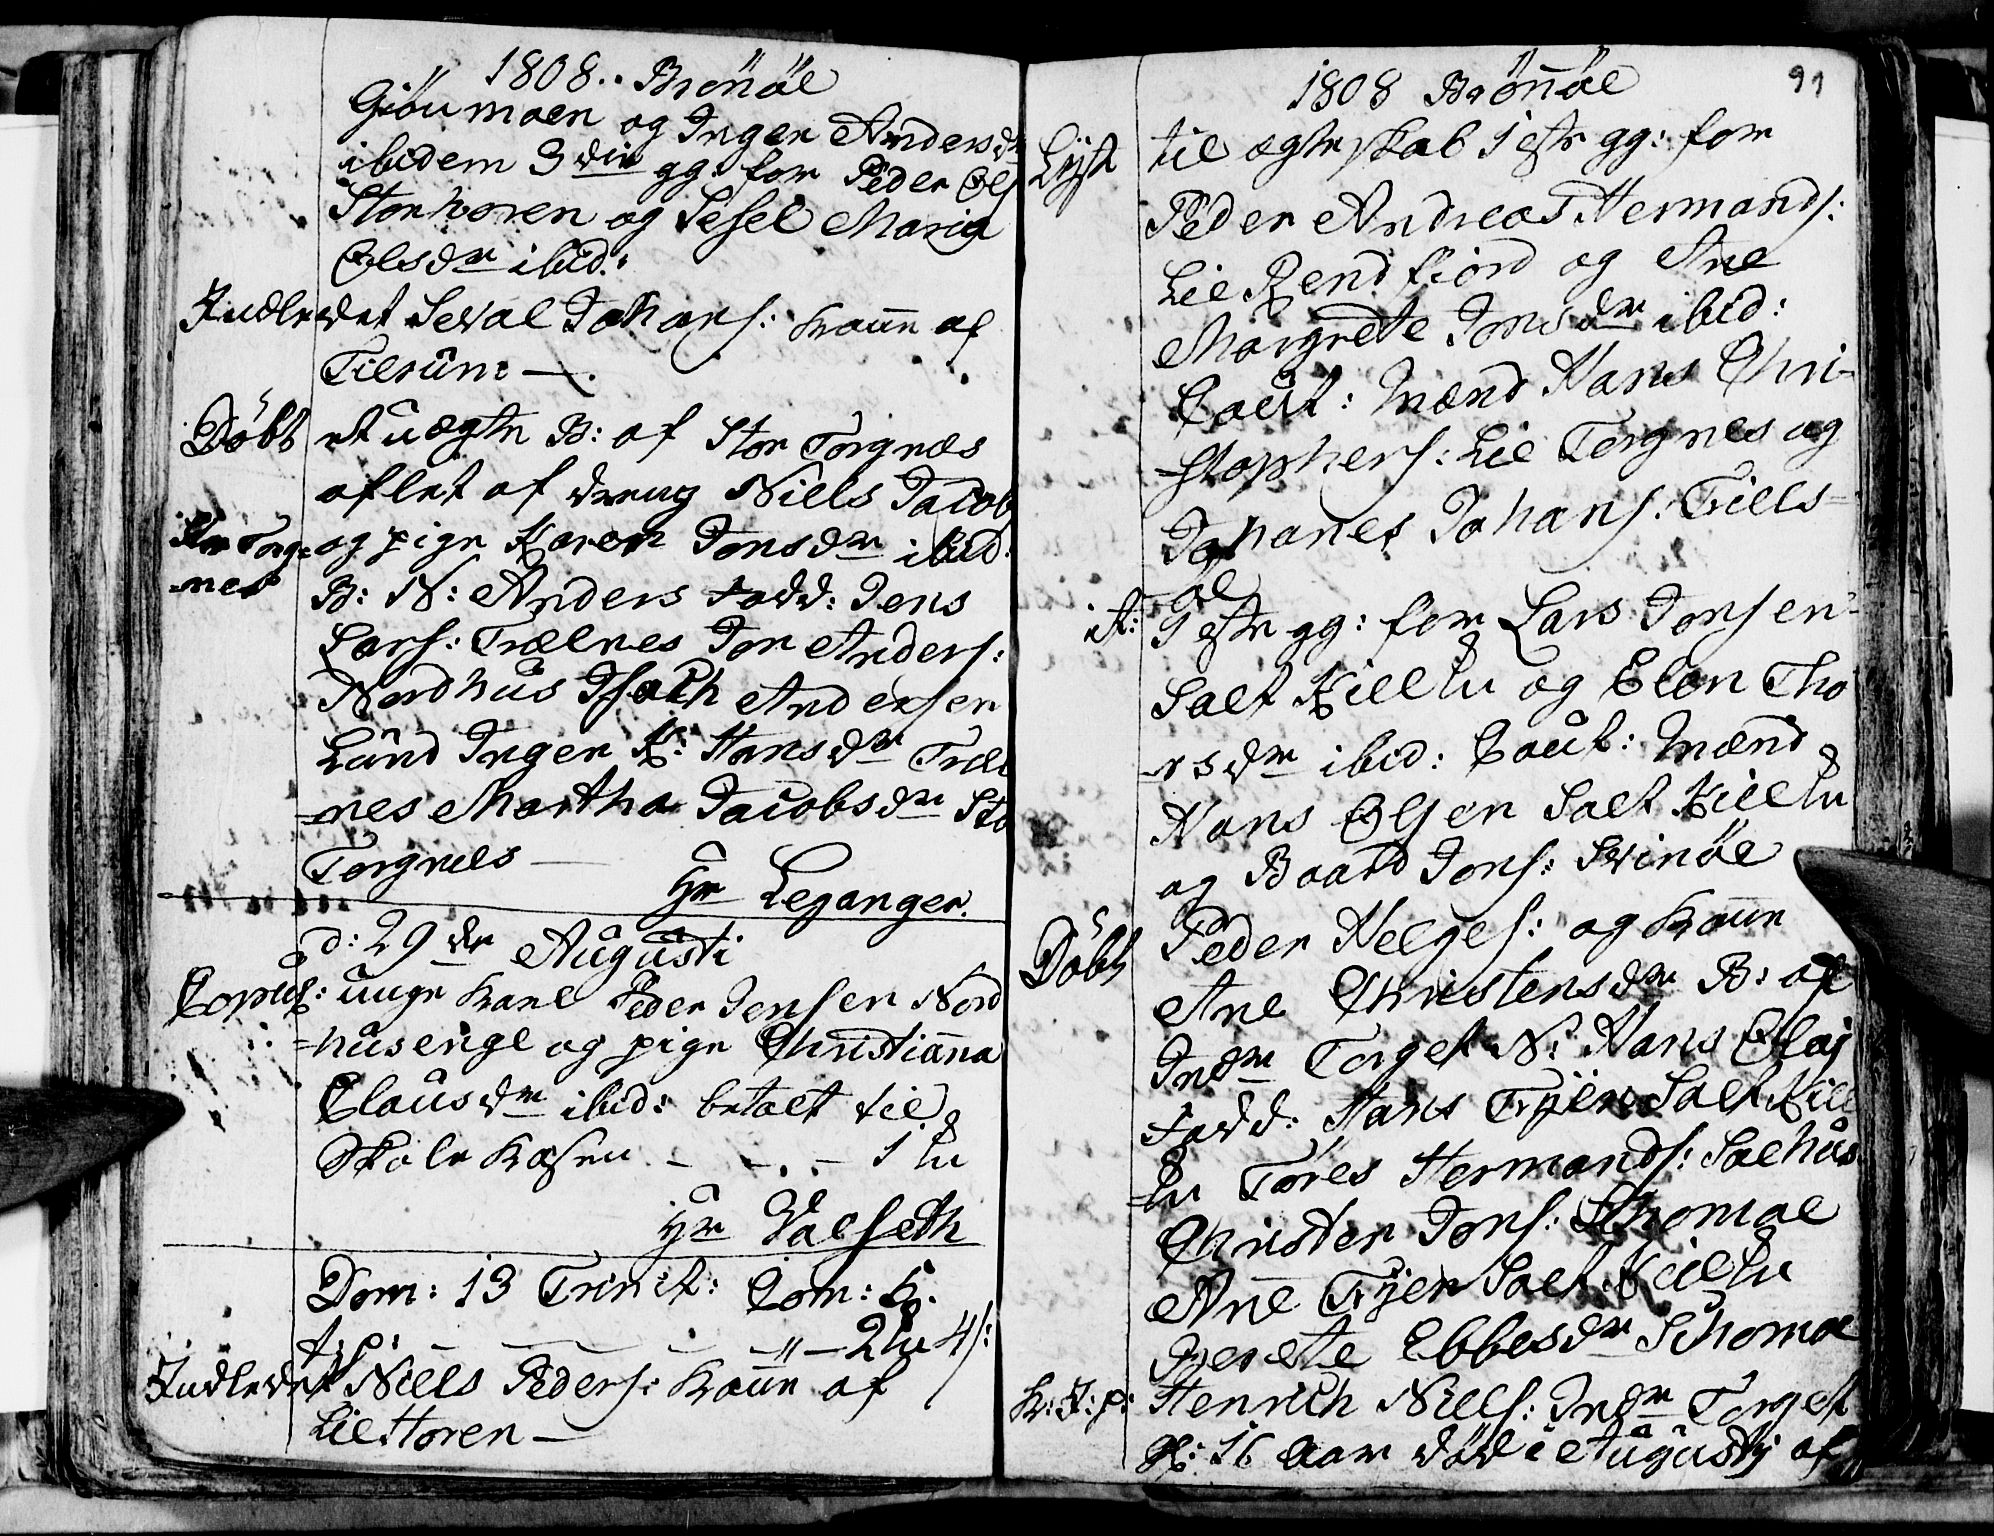 1808. Brönöe
Giöumoen og Inger Andersdr
ibidem 3die gg: for Peder Ols
Storhoren og Sesel Maria
Olsdr ibid:
Indledet Seval Johans: Kone af
Tilrüm —.
Döbt et uægte B: af Stor Torgnes
aflet af dreng Niells Jacobs
og pige Karen Jonsdr ibid:
Stor Torg=
=nes
B: N: Anders Fadd: Jens
Lars: Trælnes Jon Anders:
Nordhüs Isach Andersen
Lünd Inger K: Hansdr Træl
=nes Martha Jacobsdr Sto
Torgnes —
Hr Leganger.
d: 29de Augüsti
Copul: unge Karl Peder Jensen Nord
=hüsenge og pige Christianna
Clausdr ibid: betalt til
Skole Kasen - - . - 1 
Hr Valseth
Dom: 13 Trinit: Com: 5.
t: p: — — — — „ — 2 4 s:
Indledet Niells Peders: Kone af
Lie Horen —
1808 Brönnöe
91
Lyst til ægteskab 1ste gg: for
Peder Andreas Hermands:
Lie Rendfiord og Ane
Margrete Jonsdr ibid:
Caut: Mænd Hans Chri-
=stophers: Lie Torgnes og
Johanes Johans: Tills=
=öe
it: 1ste gg: for Lars Jonsen
Salt Kiellu og Elen Tho
=rsdr ibid: Caut: Mænd
Hans Olsen Salt Kiellu
og Baard Jons: Svinöe
Döbt Peder Helges: og Kone
Ane Christensdr B: af
Indr Torget N: Hans Olaj
Fadd: Hans Tyien Salt Kiel
=lu Töres Hermands: Salhüs
Christen Jons: Schomoe
Ane Tyien Salt Kiellu
Berete Ebbesdr Schomoe
K: J: p: Henrich Niells: Indr Torget
Gl: 16 aar död i Augusty af